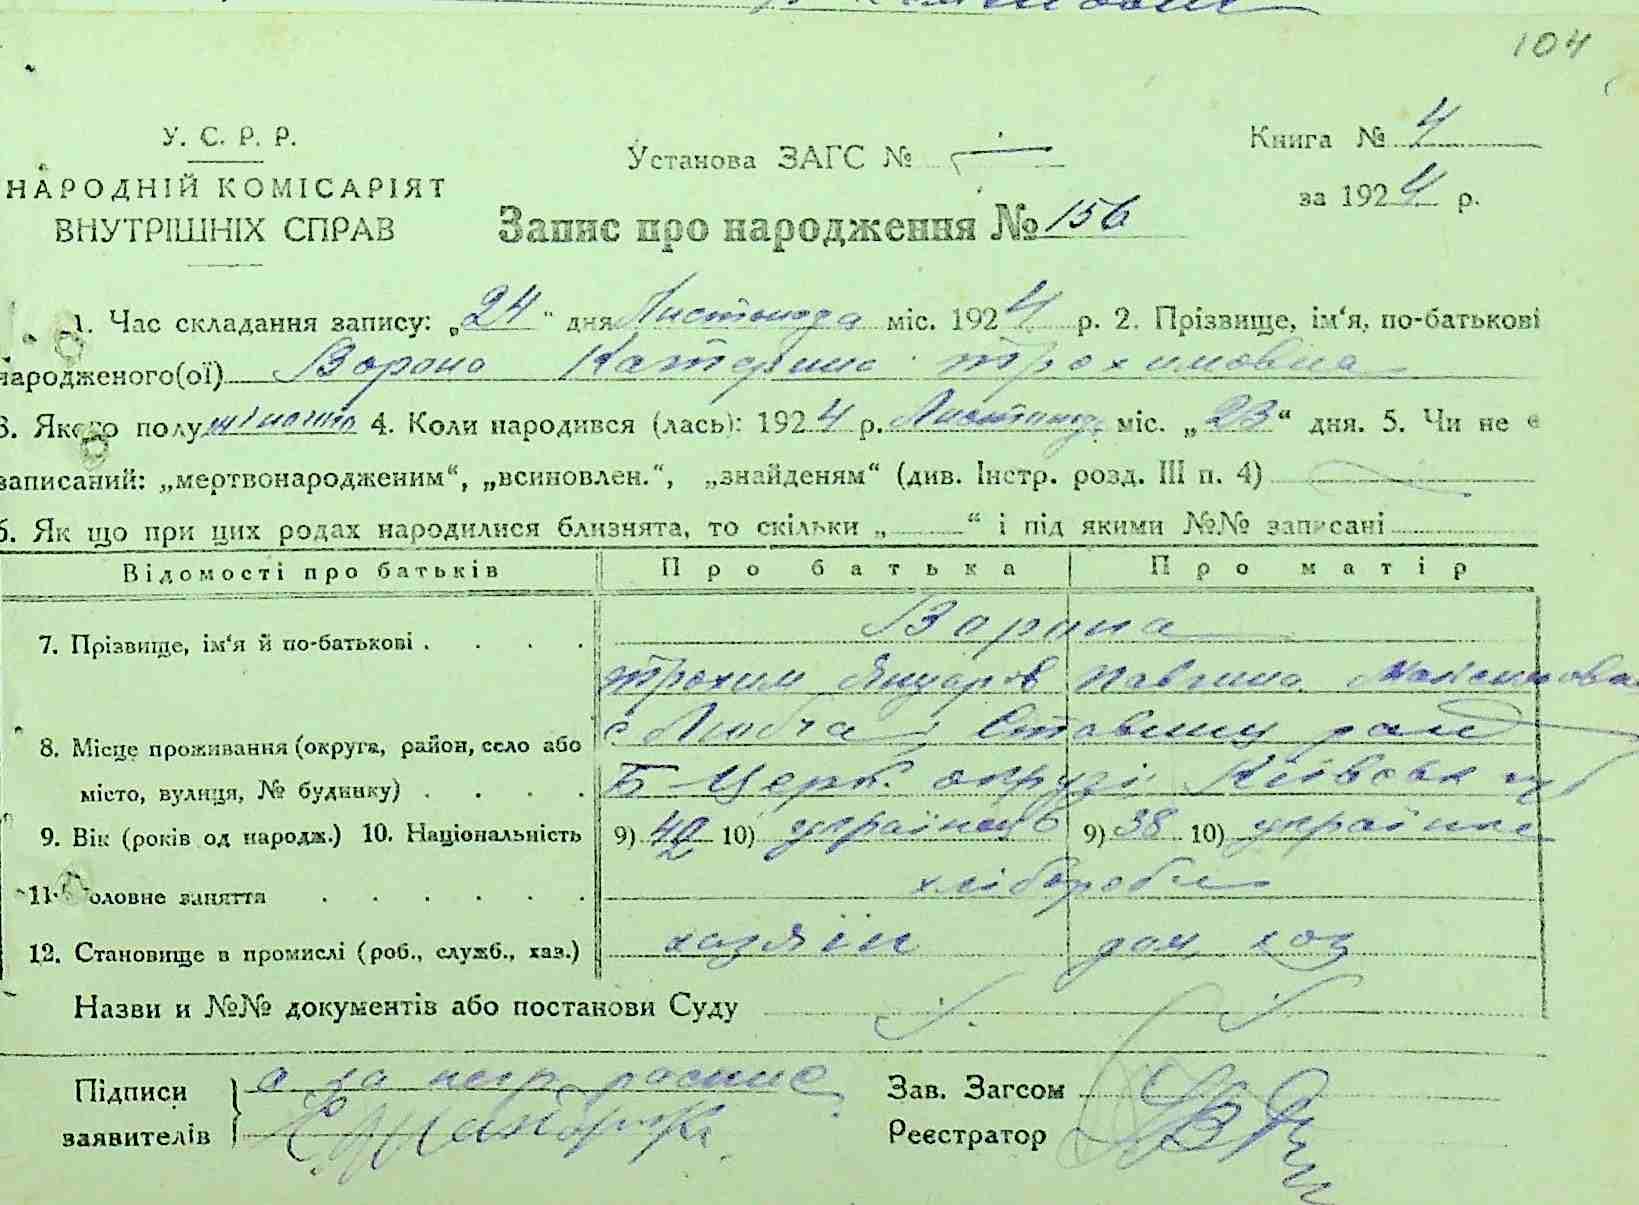 104
У. С. Р. Р.
НАРОДНІЙ КОМІСАРІЯТ
ВНУТРІШНІХ СПРАВ
Установа ЗАГС №
Книга № 4
за 1924 р.
Запис про народження № 156
1. Час складання запису: „24" дня Листопада міс. 1924 р. 2. Прізвище, ім'я, по-батькові
народженого(ої) Ворона Катерина Трохимовна
3. Якого полу жіночого 4. Коли народився (лась): 1924 р. Листопаду міс. „23" дня. 5. Чи не є
записаний: „мертвонародженим", „всиновлен.", „знайденям" (див. Інстр. розд. III п. 4)
6. Як що при цих родах народилися близнята, то скільки „ " і під якими №№ записані
Відомості про батьків Про батька Про матір
7. Прізвище, ім'я й по-батькові Ворона
Трохим Януаров Павлина Максимова
8. Місце проживання (округа, район, село або с Любча Ставищ рай
місто, вулиця, № будинку) Б Церк. окрузі Київськ губ
9. Вік (років од народж.) 10. Національність 9) 40 10) українець 9) 38 10) українка
11. Головне заняття хлібороби
12. Становище в промислі (роб., служб., хаз.) хазяїн дом. хоз
Назви и №№ документів або постанови Суду
Підписи а за негр росписс
заявителів
Зав. Загсом
Реєстратор